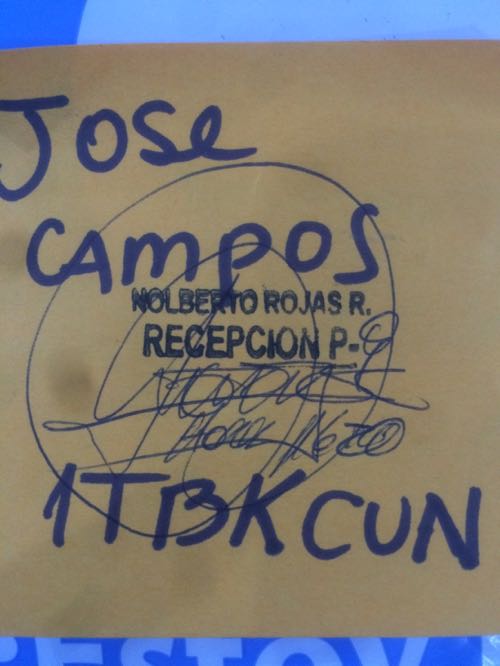 Jose
CAMPOS
NOLBERTO ROJAS R.
RECEPCION P-
1TBK CUN